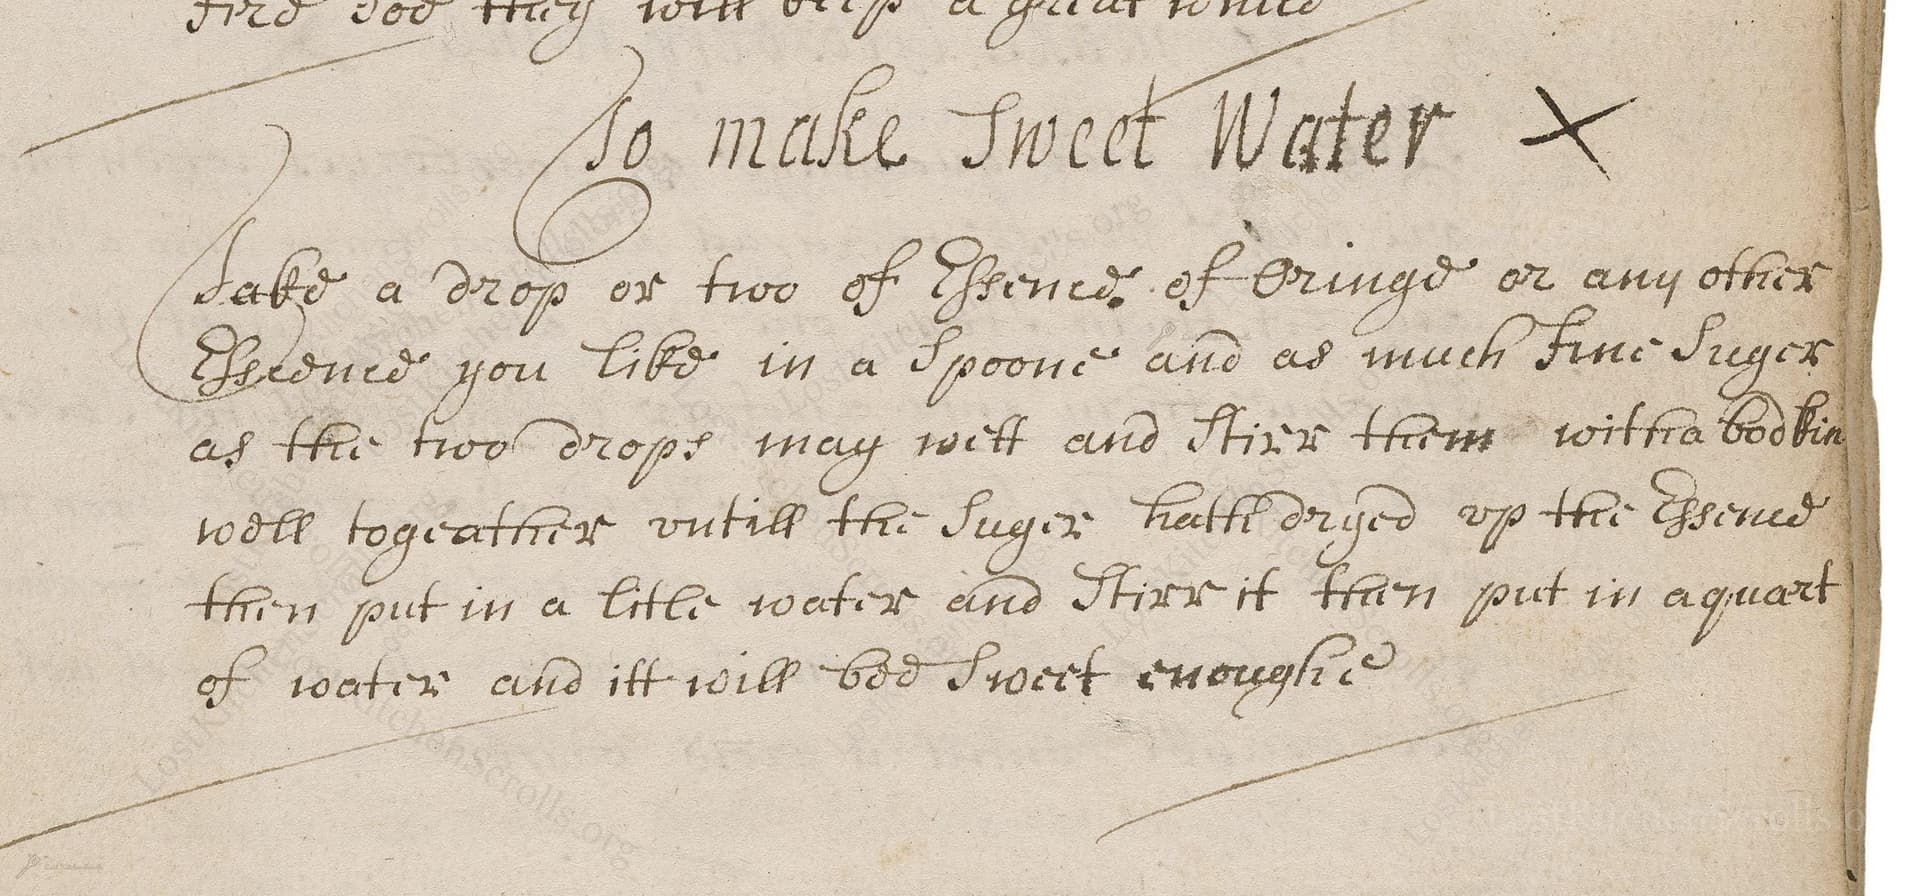 fire soe they will keep a great while
To make Sweet Water ×
Take a drop or two of Essence of Oringe or any other
Esscence you like in a Spoone and as much Fine Suger
as the two drops may wett and Stirr them with a bodkin
well togeather vntill the Suger hath dryed vp the Essence
then put in a litle water and Stirr it then put in a quart
of water and itt will bee Sweet enoughe
LostKitchenScrolls.org